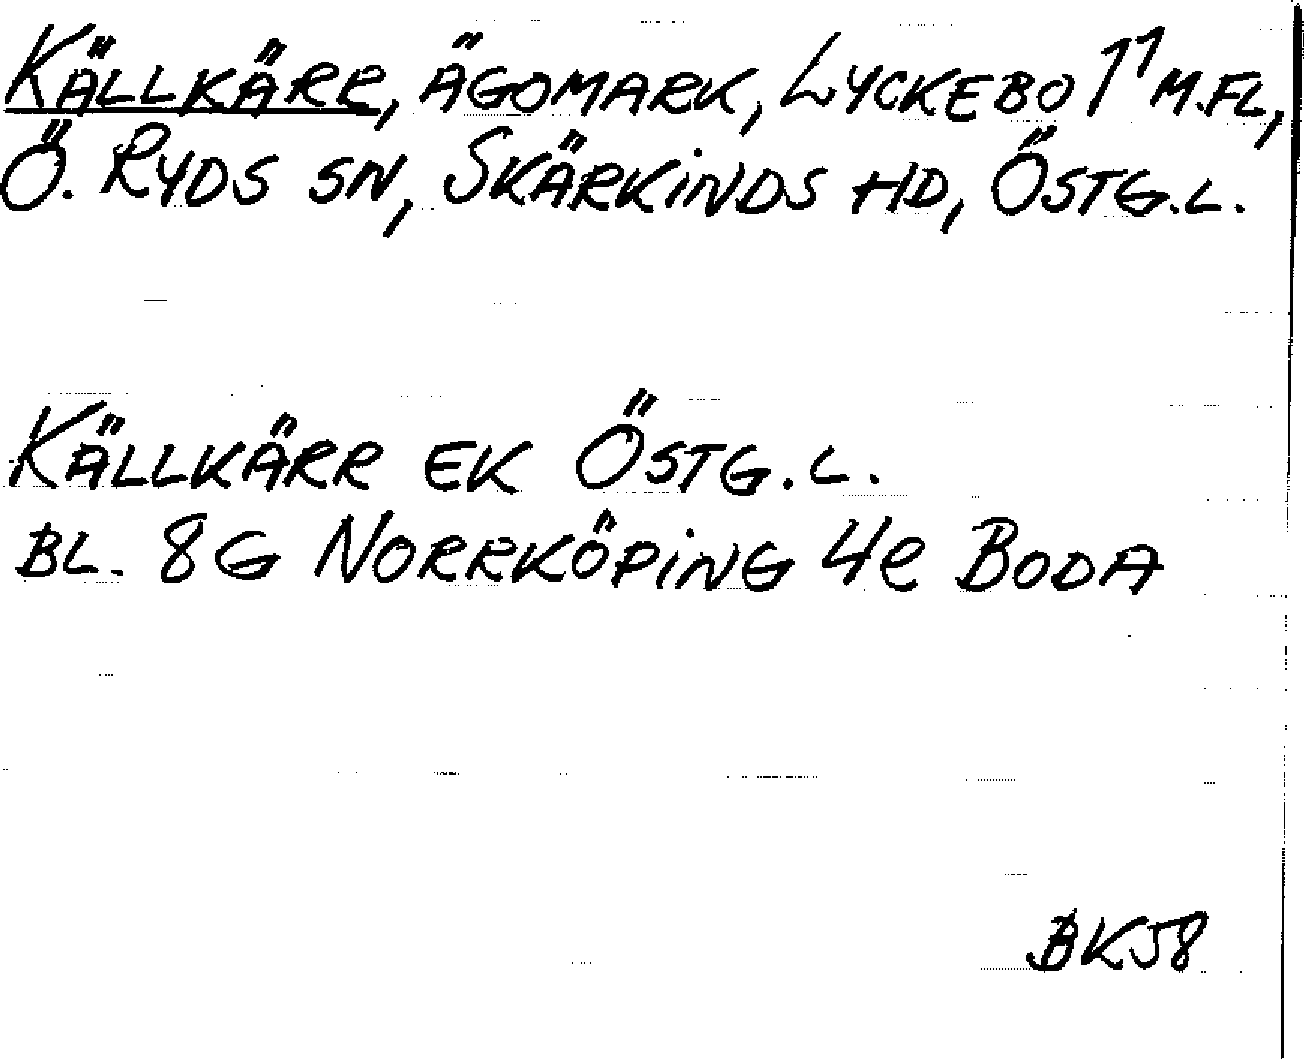 KÄLLKÄRR, ÄGOMARK, LYCKEBO 1¹ M.FL,
Ö. RYDS SN, SKÄRKINDS HD, ÖSTG.L.
KÄLLKÄRR EK ÖSTG.L.
BL. 8G NORRKÖPING 4e BODA
BK58